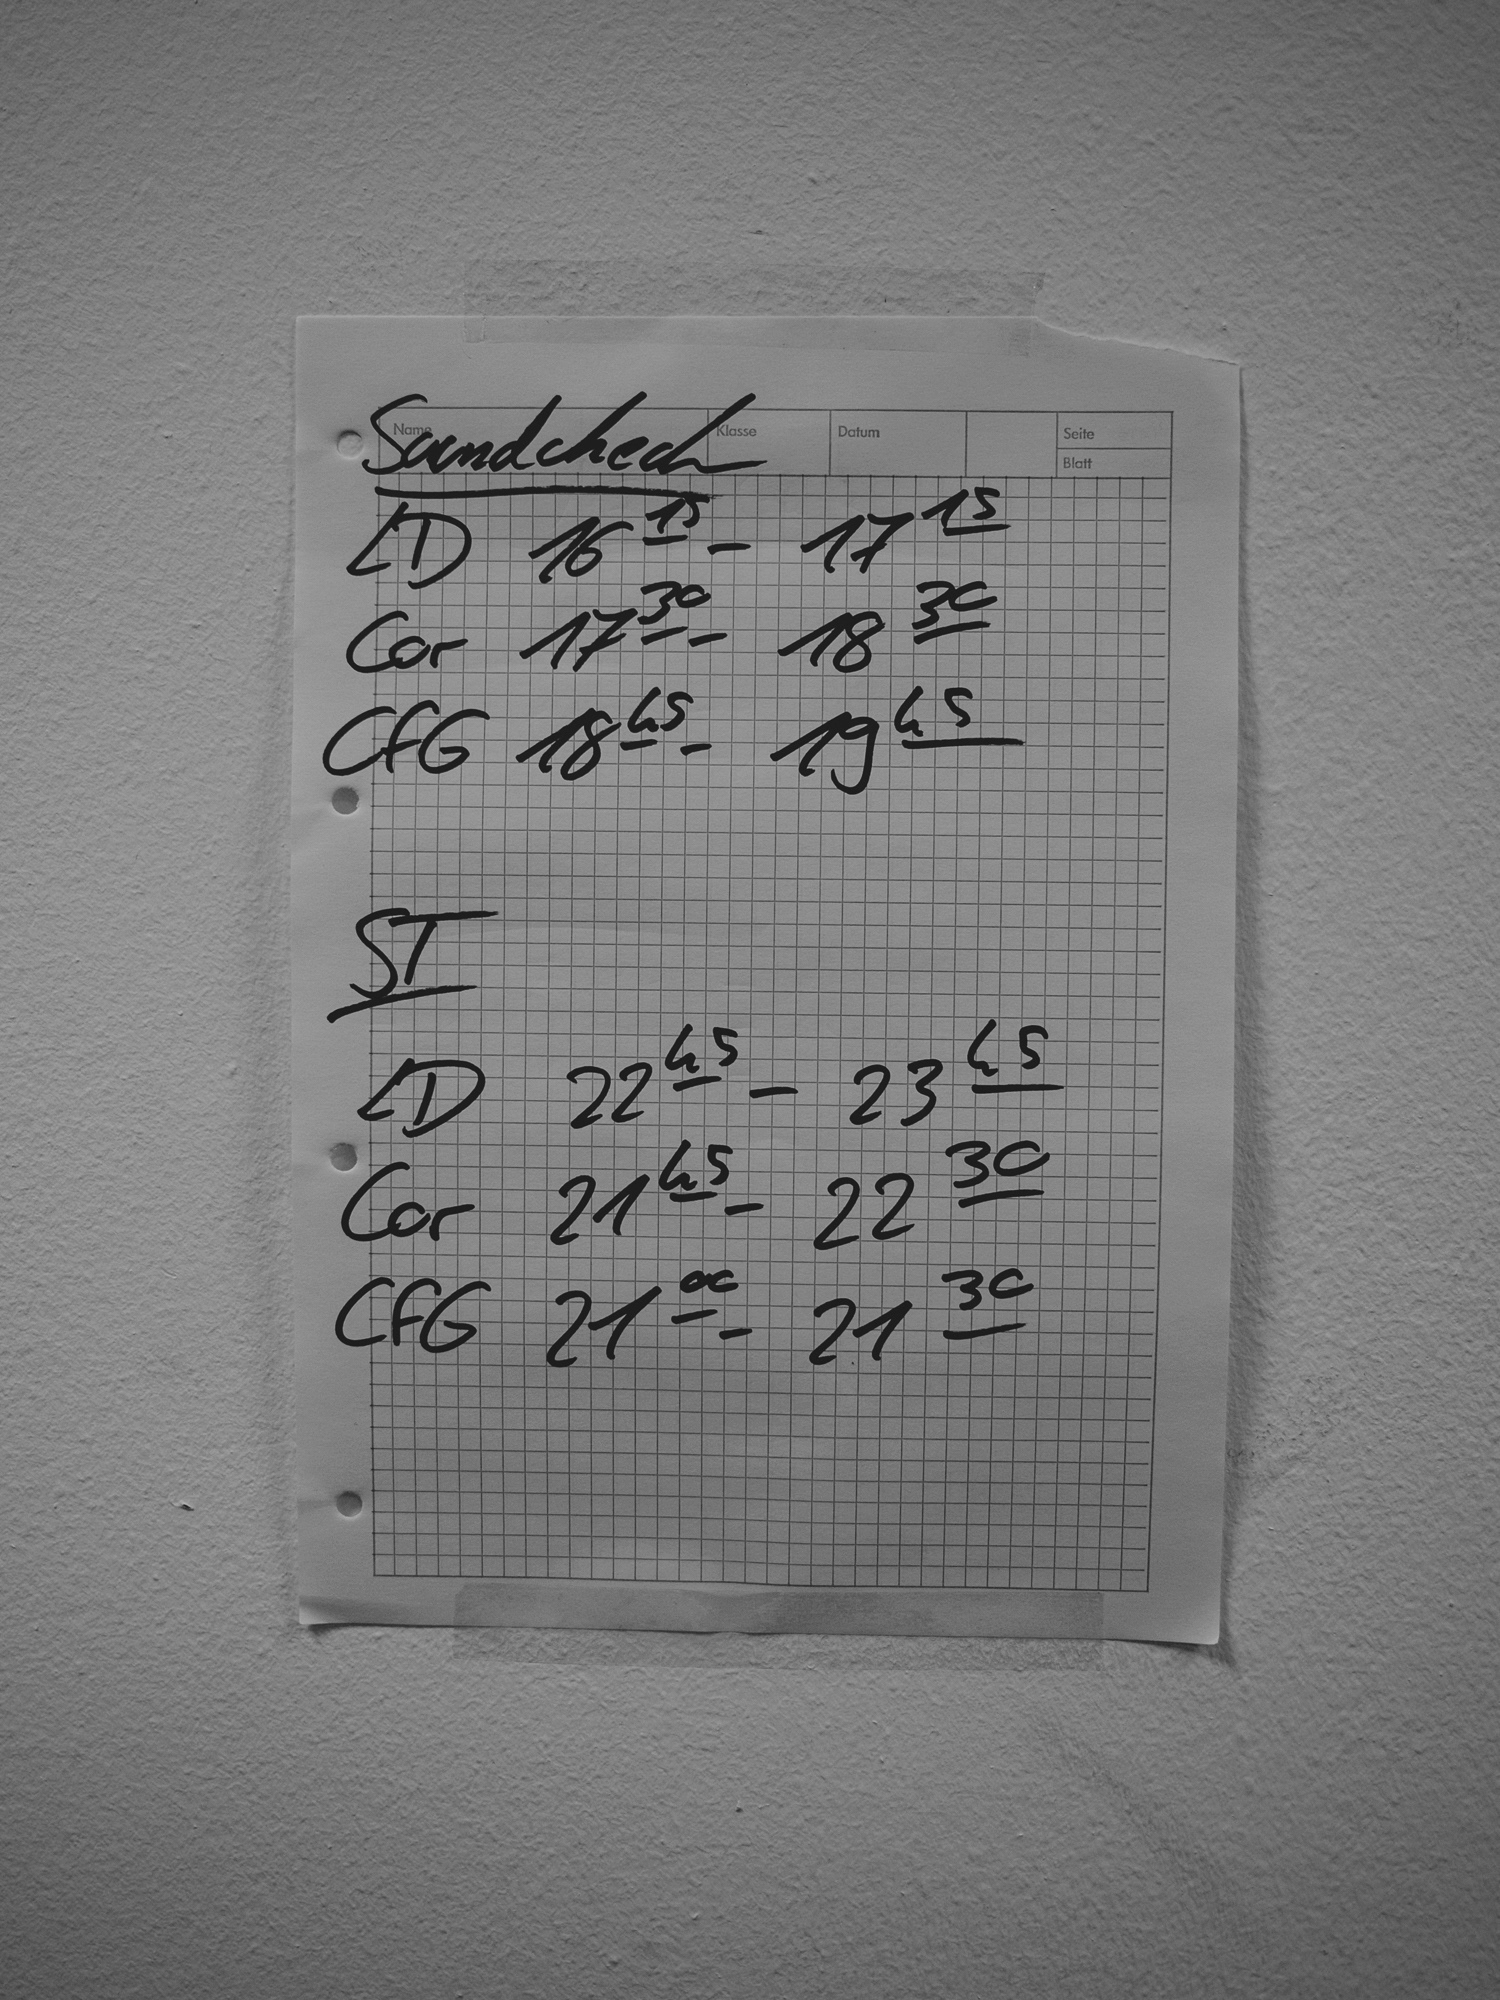 Name Klasse Datum Seite
Blatt
Soundcheck
LD 16 15 - 17 15
Cor 17 30 - 18 30
CfG 18 45 - 19 45
ST
LD 22 45 - 23 45
Cor 21 45 - 22 30
CfG 21 00 - 21 30